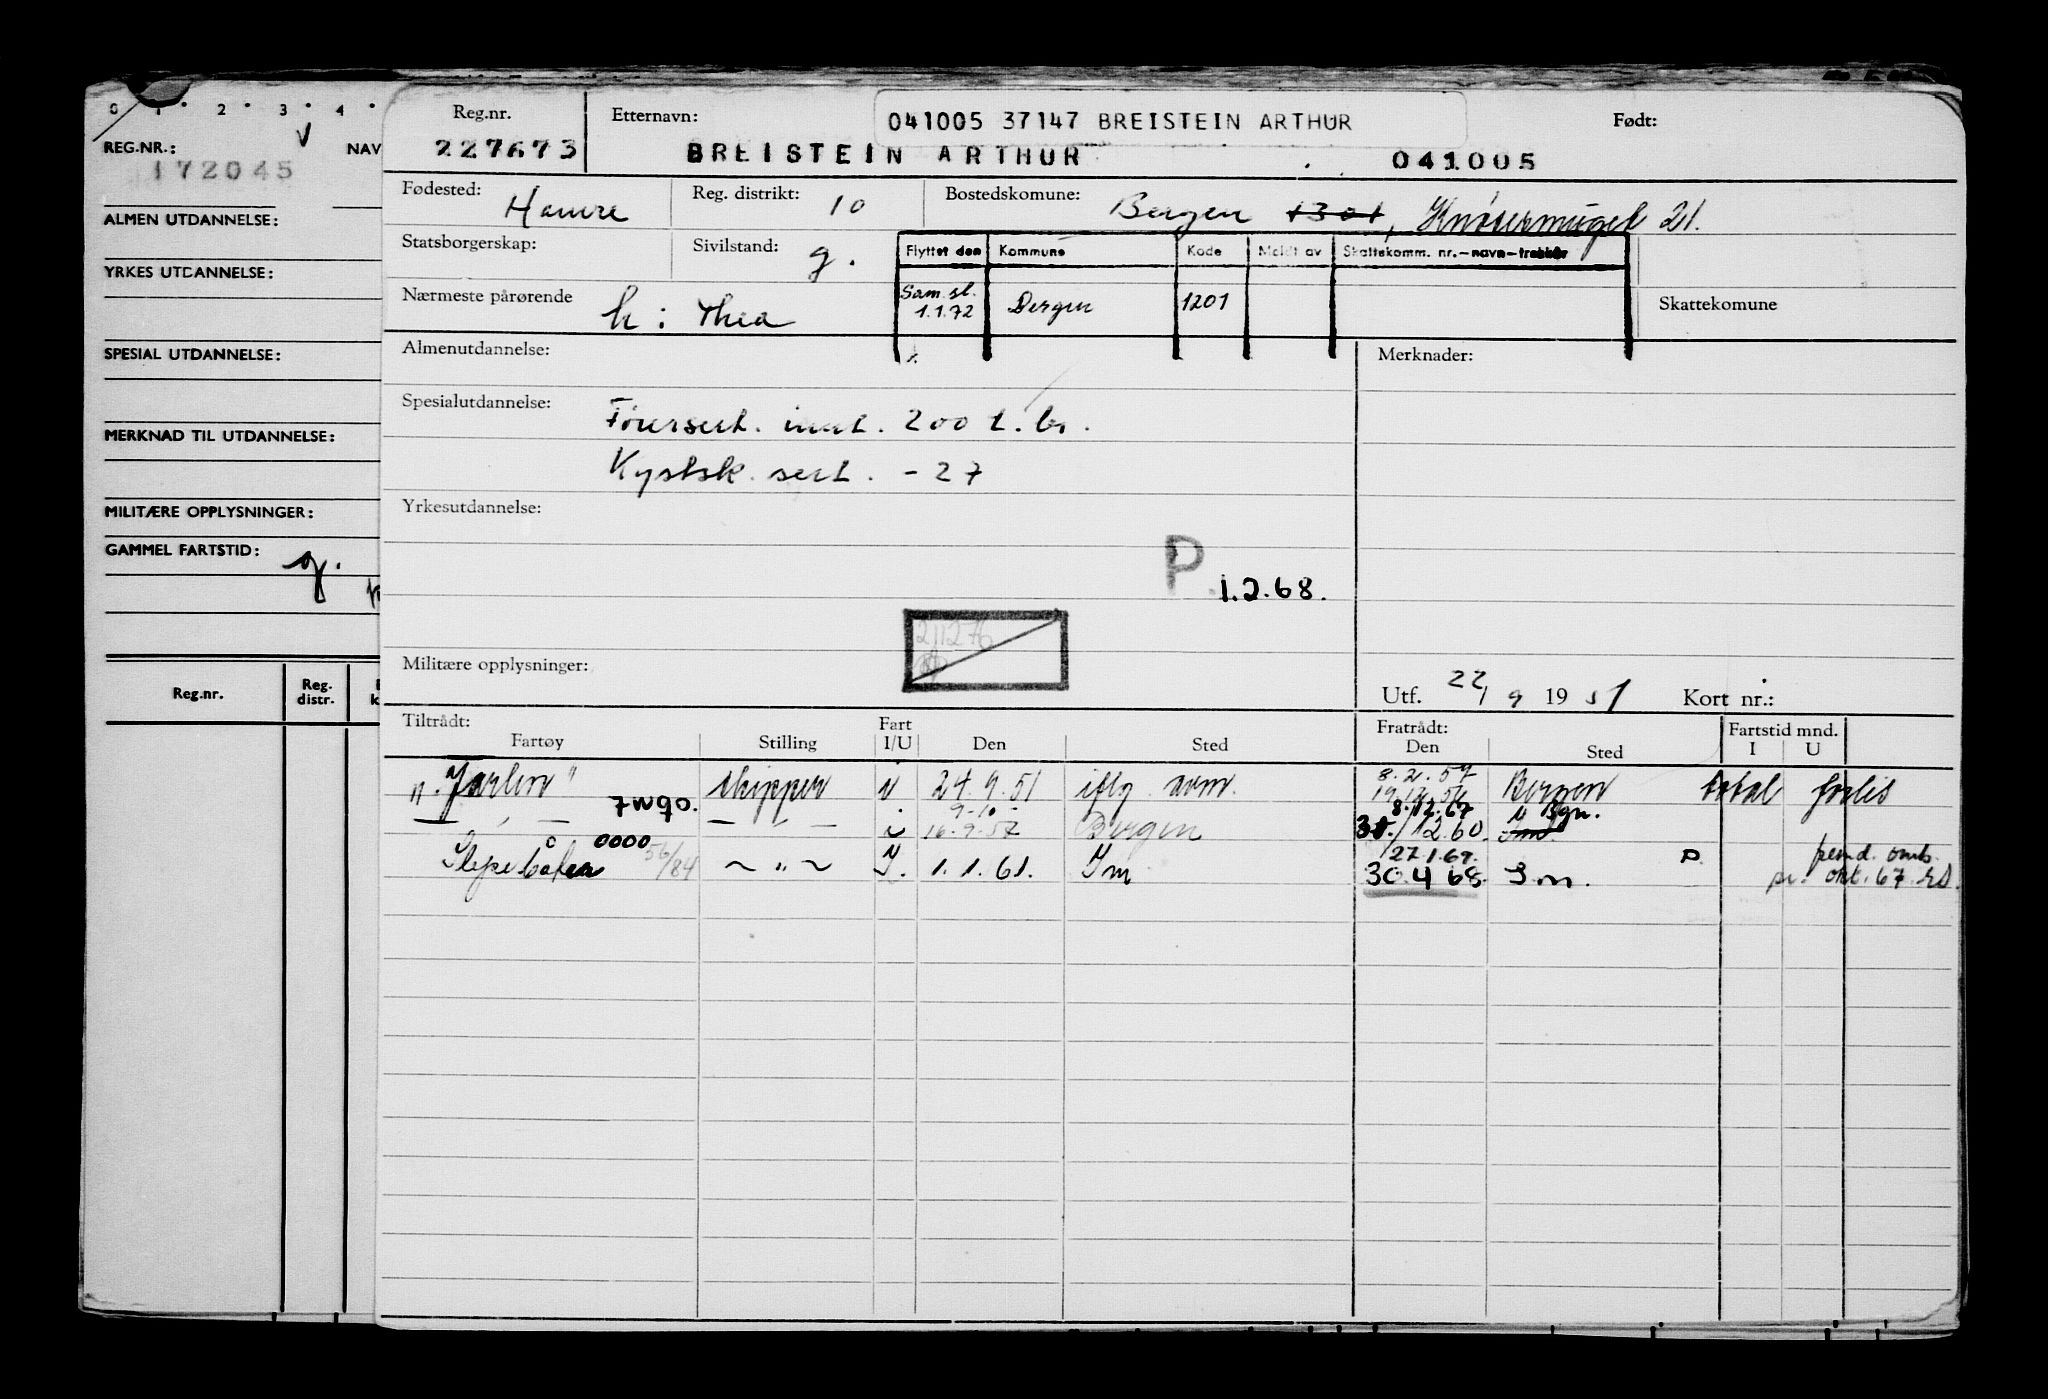 0 1 2 3 4
REG.NR.: NAV
172045
ALMEN UTDANNELSE:
YRKES UTDANNELSE:
SPESIAL UTDANNELSE:
MERKNAD TIL UTDANNELSE:
MILITÆRE OPPLYSNINGER:
GAMMEL FARTSTID: g.
Reg.nr. Reg. distr.
Reg.nr. Etternavn: 041005 37147 BREISTEIN ARTHUR Født:
227673 BREISTEIN ARTHUR 041005
Fødested: Hamre Reg. distrikt: 10 Bostedskomune: Bergen 1301, 21.
Statsborgerskap: Sivilstand: g. Flyttet den Kommune Kode Meldt av Skattekomm. nr.-navn-trekkår
Nærmeste pårørende h: Thea Sam.sl. 1.1.72 Bergen 1201 Skattekomune
Almenutdannelse: Merknader:
Spesialutdannelse: Førersert. innt. 200 t. br.
Kystsk. sert. - 27
Yrkesutdannelse:
P 1.2.68.
Militære opplysninger:
Utf. 22/9 1951 Kort nr.:
Tiltrådt: Fart Fratrådt: Fartstid mnd.
Fartøy Stilling I/U Den Sted Den Sted I U
"Jarlin" skipper i 24.9.51 iflg. 8.2.57 Bergen total forlis
i 16.9.57 Bergen 8.12.67 Bgn.
31/12.60.
0000 56/84 I. 1.1.61. Im 27.1.69.
30.4 68. Im. P
okt. 67